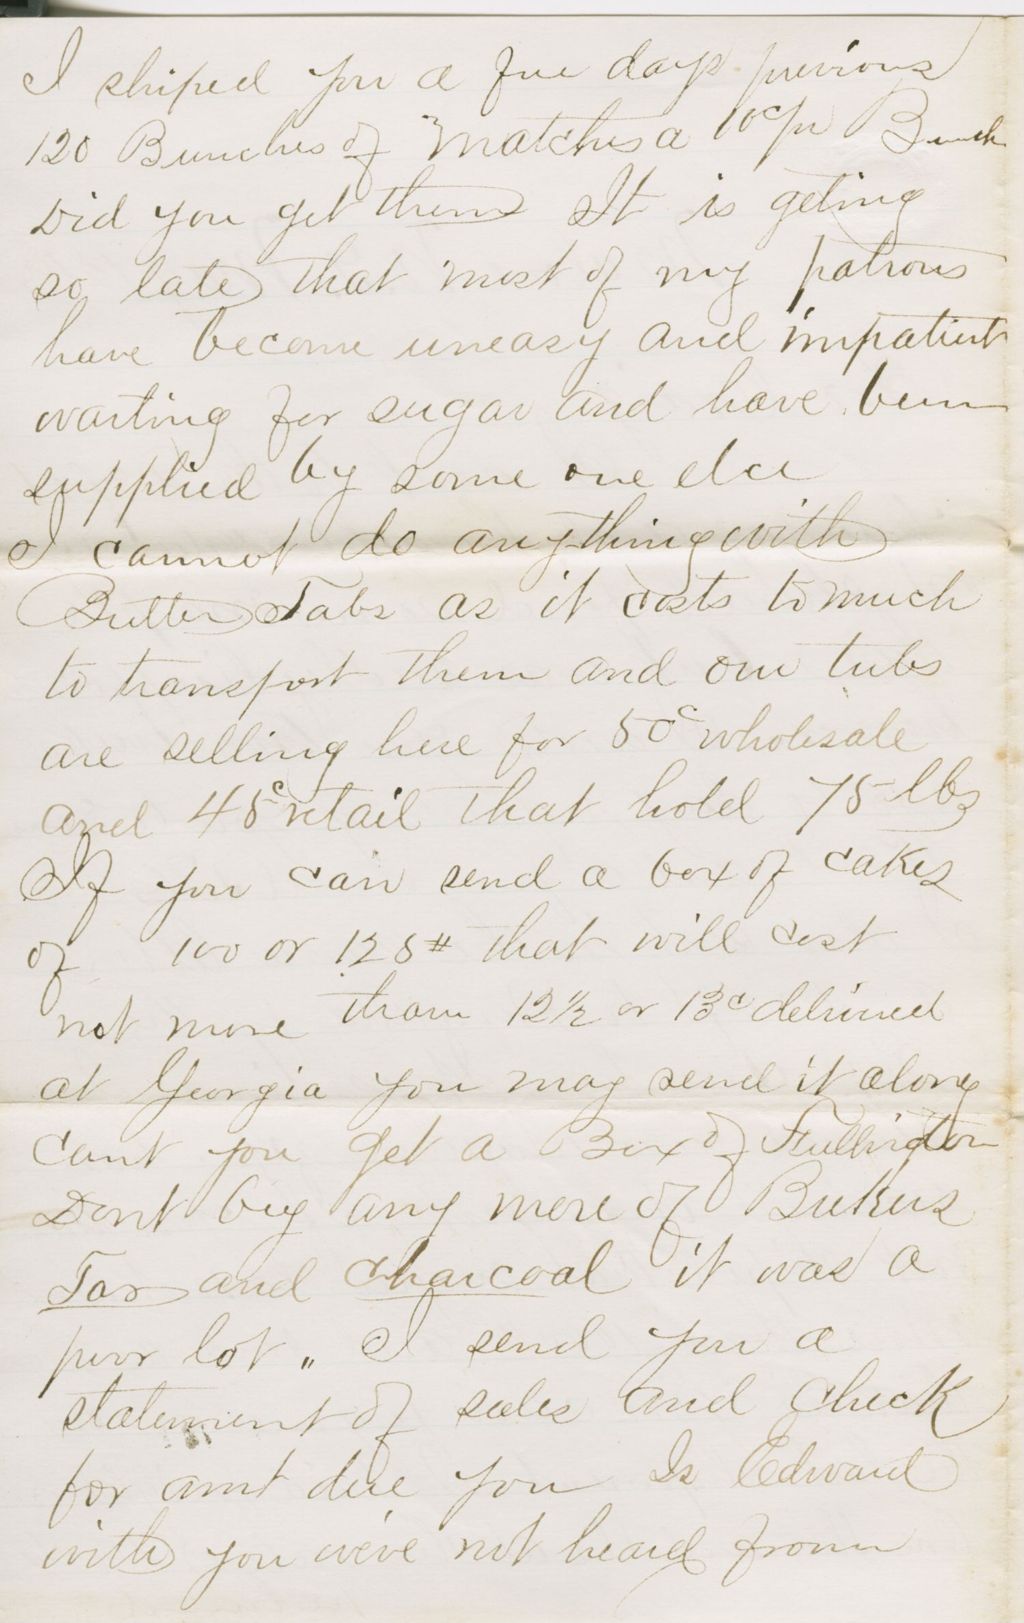 I shiped you a few days previous
120 Bunches of Matches a 10c pr Bunch
Did you get them It is geting
so late that most of my patrons
have become uneasy and impatient
waiting for sugar and have been
supplied by some one else
I cannot do anything with
Butter Tubs as it costs to much
to transport them and our tubs
are selling here for 50c wholesale
and 45c retail that hold 75 lbs
If you can send a box of cakes
of 100 or 125# that will cost
not more than 12½ or 13c delivered
at Georgia you may send it along
cant you get a Box of Fullington
Dont buy any more of
Tar and charcoal it was a
poor lot „ I send you a
statement of sales and check
for amt due you Is Edward
with you we've not heard from